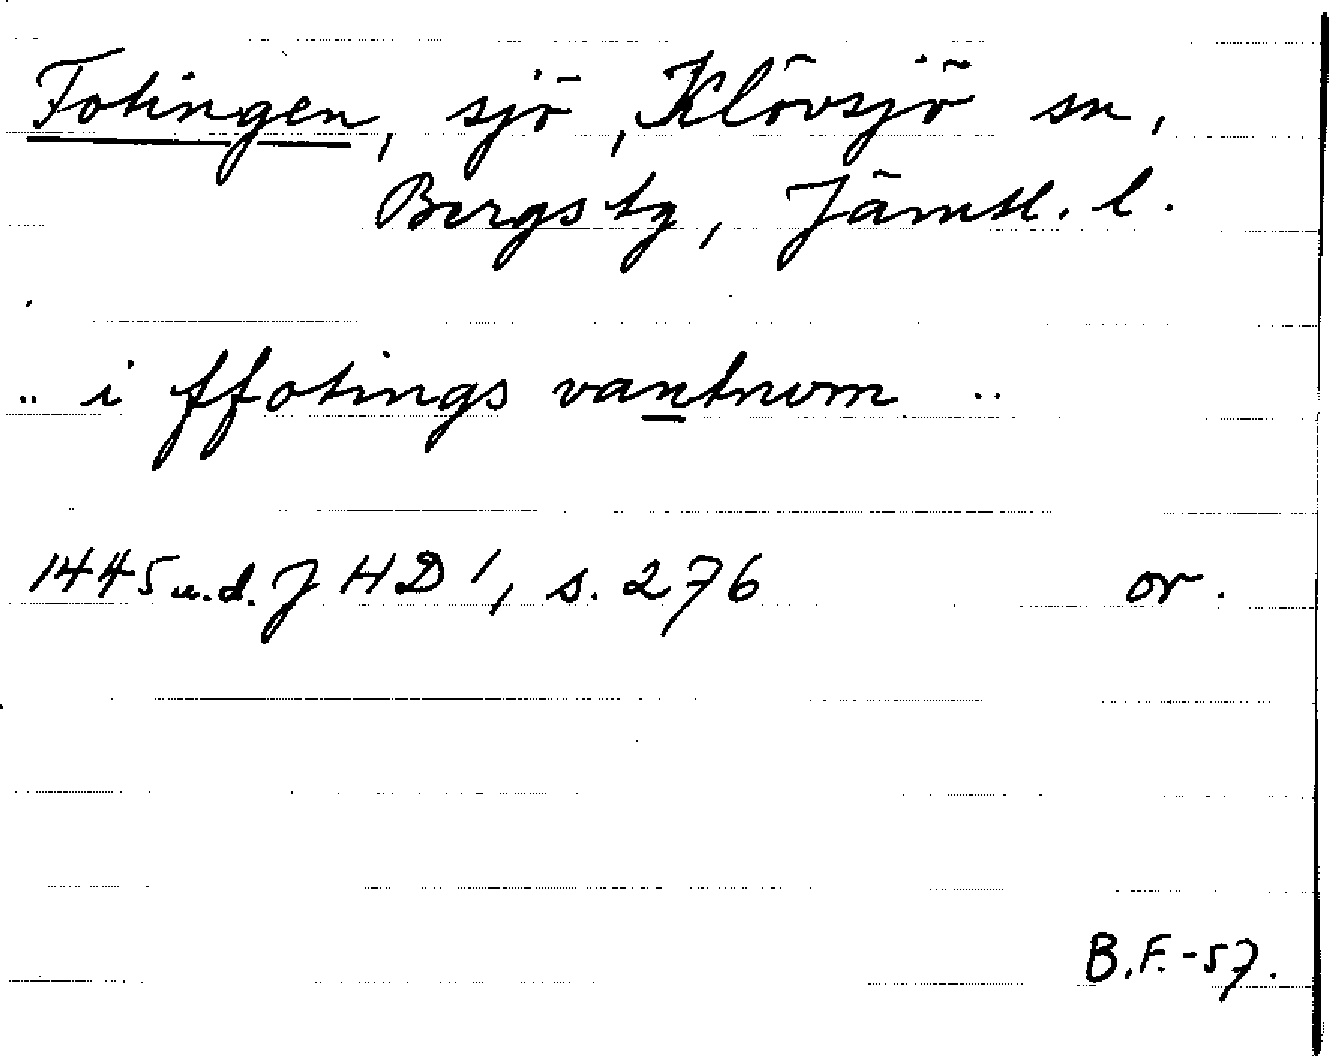 Fotingen, sjö, Klövsjö sn,
Bergs tg, Jämtl. l.
.. i ffotings vantnom ..
1445 u.d. JHD 1, s. 276 or.
B.F.-57.